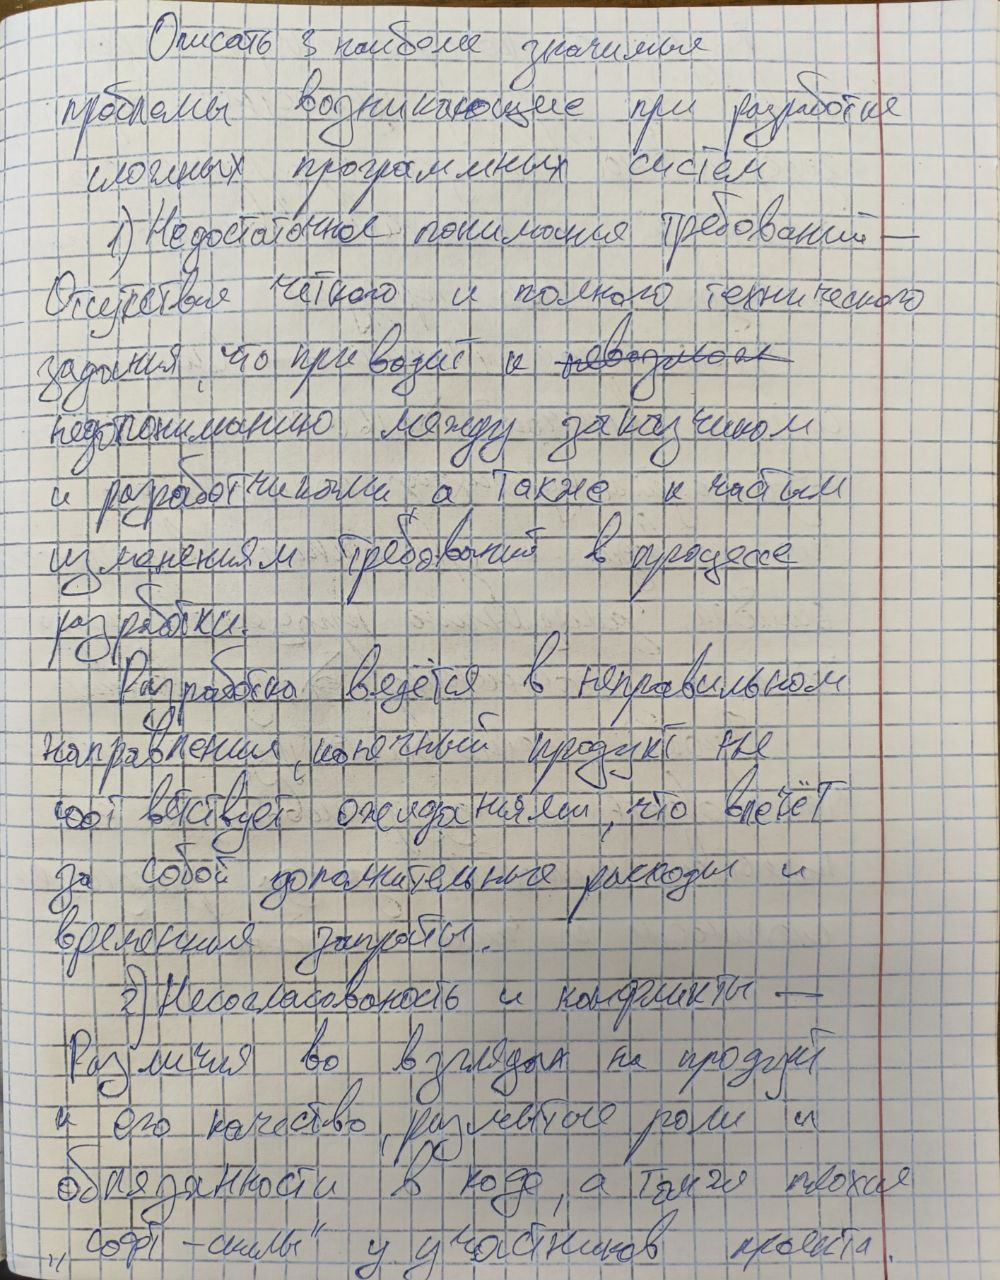 Описать 3 наиболее значимые
проблемы возникающие при разработке
сложных программных систем
1) Недостаточное понимание требований —
Отсутствие чёткого и полного технического
задания, что приводит к невозмож
недопониманию между заказчиком
и разработчиками а также к частым
изменениям требований в процессе
разработки.
Разработка ведётся в неправильном
направлении, конечный продукт не
соответствует ожиданиям, что влечёт
за собой дополнительные расходы и
временные затраты.
2) Несогласованость и конфликты —
Различия во взглядах на продукт
и его качество, размытые роли и
обязанности в коде, а также плохие
"софт-скилы" у участников проекта.